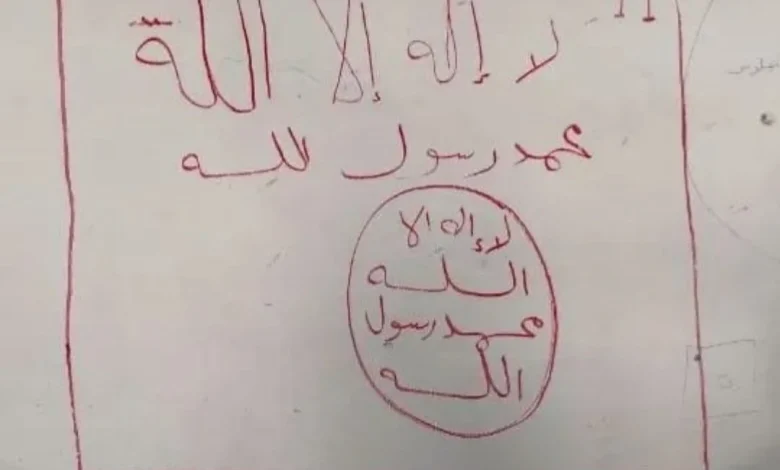 لا إله إلا اللة
محمد رسول لله
لا إله الا
الله
محمد رسول
الله